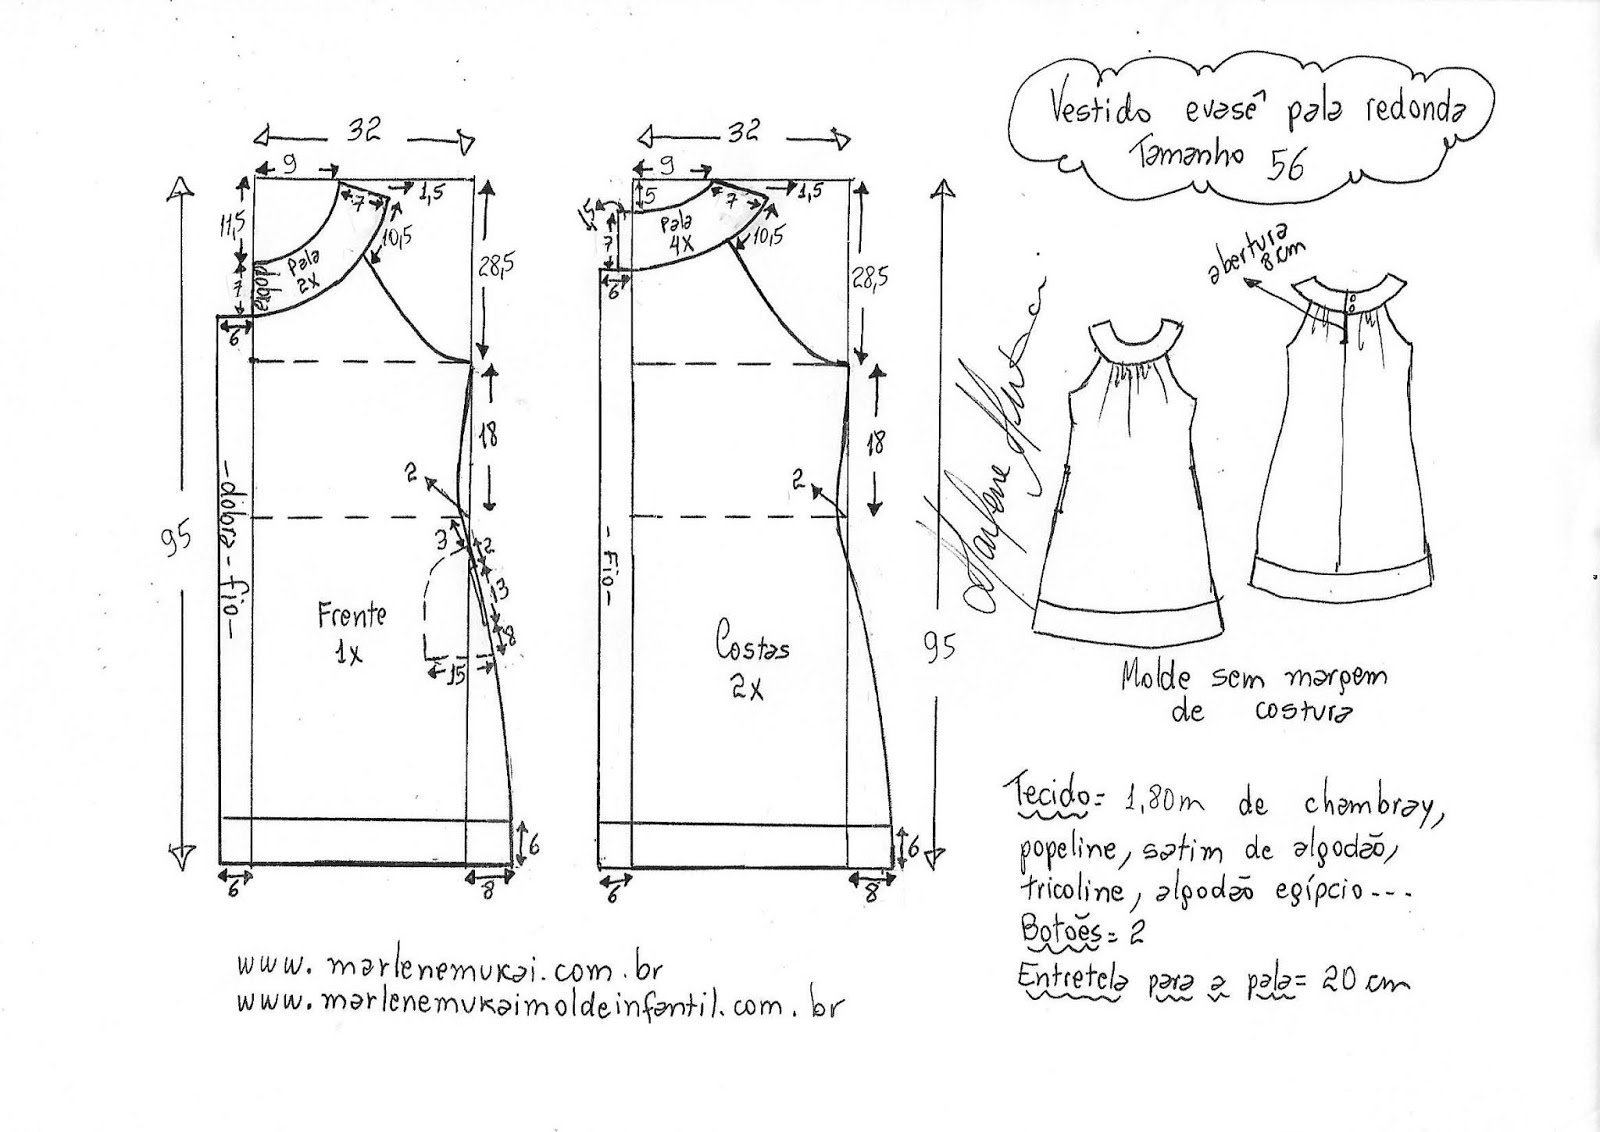 Vestido evasê pala redonda
Tamanho 56
32
9
1,5
7
11,5
10,5
Pala
2x
dobra
7
6
28,5
18
2
95
-dobra-fio-
3
2
13
8
15
Frente
1x
6
6
8
32
9
1,5
5
7
1,5
7
10,5
Pala
4x
6
28,5
18
2
95
-Fio-
Costas
2x
6
6
8
abertura
8cm
Marlene Mukai
Molde sem margem
de costura
Tecido= 1,80m de chambray,
popeline, satim de algodão,
tricoline, algodão egípcio---
Botões= 2
Entretela para a pala= 20 cm
www.marlenemukai.com.br
www.marlenemukaimoldeinfantil.com.br